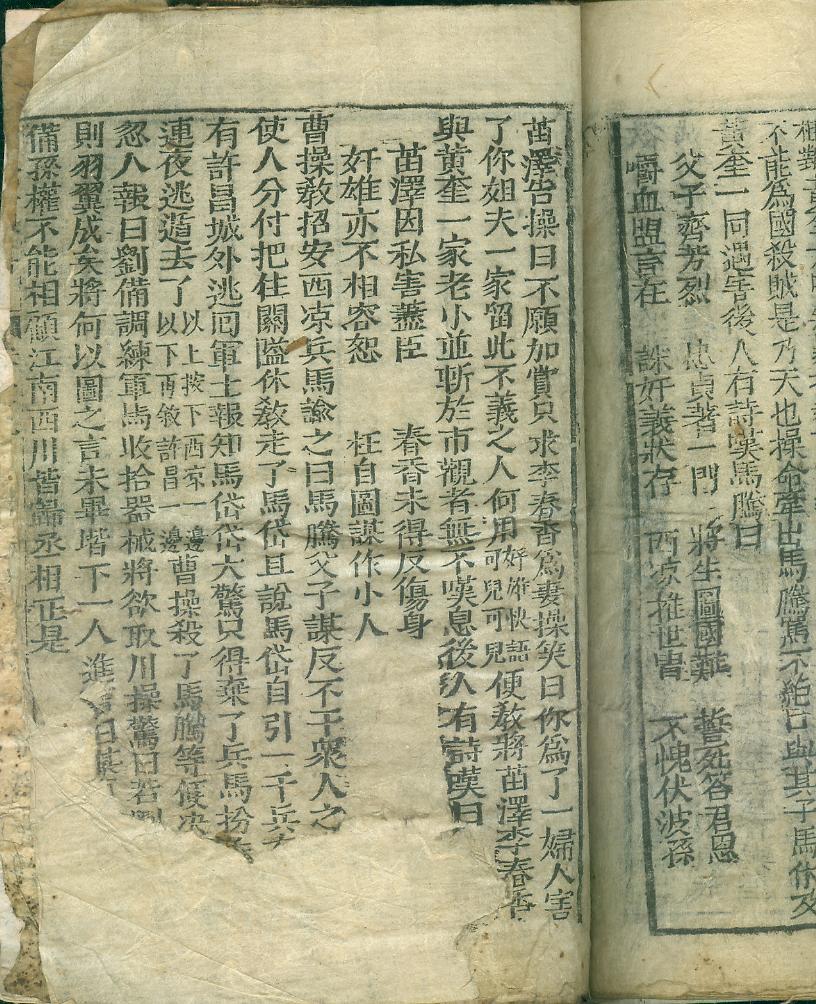 不能爲國殺賊是乃天也操命牽出馬騰罵不絶口與其子馬休及
黃奎一同遇害後人有詩嘆馬騰曰
父子齊芳烈 忠貞著一門 捐生圖國難 誓死答君恩
嚼血盟言在 誅奸義狀存 西凉推世冑 不愧伏波孫
苗澤告操曰不願加賞只求李春香爲妻操笑曰你爲了一婦人害
了你姐夫一家留此不義之人何用 奸雄快語 可兒可兒 便敎將苗澤李春香
與黃奎一家老小並斬於市觀者無不嘆息後人有詩嘆曰
苗澤因私害藎臣 春香未得反傷身
奸雄亦不相容恕 枉自圖謀作小人
曹操敎招安西凉兵馬諭之曰馬騰父子謀反不干衆人之
使人分付把住關隘休敎走了馬岱且說馬岱自引一千兵
有許昌城外逃囘軍士報知馬岱岱大驚只得棄了兵馬扮
連夜逃遁去了 以上按下西凉一邊 以下再敘許昌一邊 曹操殺了馬騰等便决
忽人報曰劉備調練軍馬收拾器械將欲取川操驚曰若劉
則羽翼成矣將何以圖之言未畢堦下一人進 曰某
備孫權不能相顧江南西川皆歸丞相正是